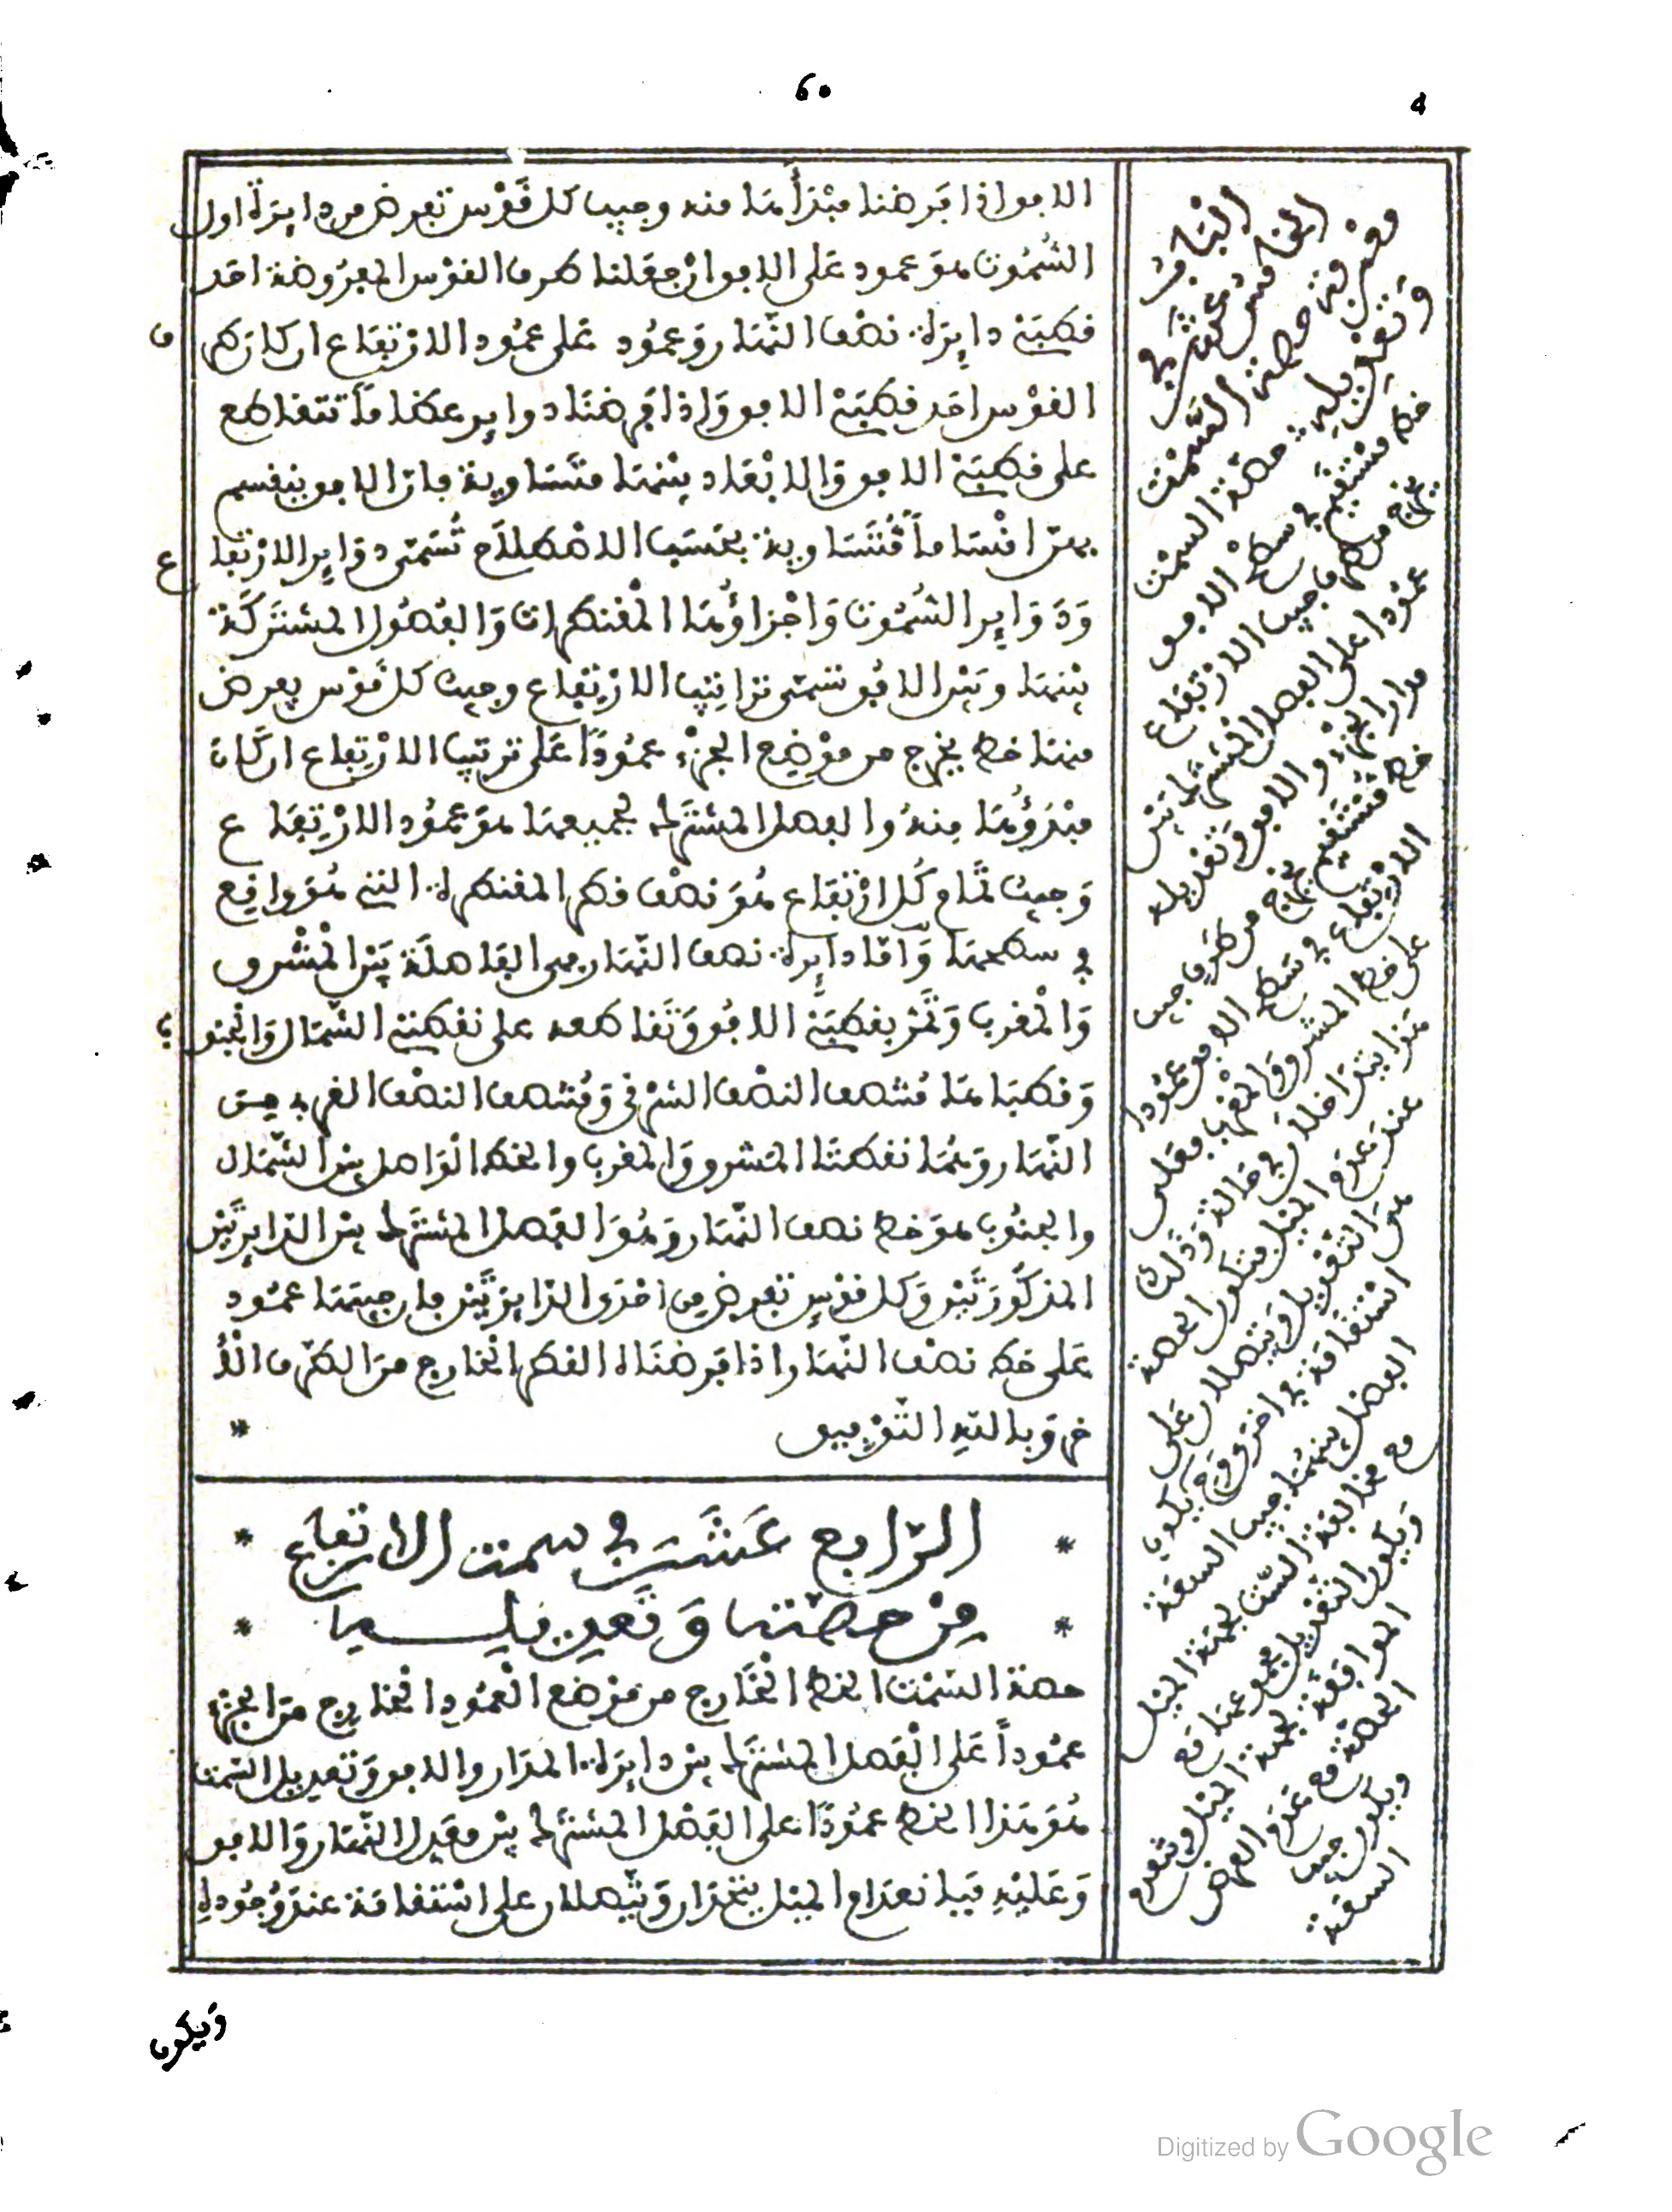 60
الافق اذا فرضنا مبدأها منه وجيب كل قوس تفرض من دايرة اول
السُّمُوت هو عمود على الافق ان جعلنا طرف القوس المفروضة احد
قطبَيْ دايرة نصف النهار وعمُود على عمُود الارتفاع ان كان طرف
القوس احد قطبَيْ الافق واذا فرضنا دواير عظاما تتقاطع
على قطبَيْ الافق والابْعَاد بيْنها متسَاوية فان الافق ينقسم
بهن اقسَاماً مُتَسَاوية بحَسَب الاصطلاح تُسَمّى دوَاير الارْتفاع
وَدَوَاير السُّمُوت وَاجْزاؤُها الْمُقنطرات وَالفُصُول المشترَكة
بيْنها وبَيْن الافُق تسَمّى تراتيب الارْتِفاع وجيبُ كل قَوْس يفرض
منها خط يخرج من موْضِع الجزْء عمُودًا على ترتيب الارْتفاع ان كَان
مبْدَؤُها مِنهُ والفصل المشترك لجميعها هوَ عمُود الارْتِفَاع
وَجيبُ تمَام كُل ارْتفَاع هُوَ نصْف قطر المقنطرة التي هُوَ واقع
في سطحها وَأمّا دايرة نصف النّهار فهي الفَاصلة بَيْن الْمشْرق
وَالْمغرب وَتمُرّ بقطبَيْ الافُق وَتقَاطعه على نقطتي الشمَال وَالجنوب
وَقطباها مُنتصف النصْف الشرْقي وَمُنتصف النصْف الغربي من
النّهار وَهُما نقطتَا المشرق وَالمغرب والخط الْوَاصل بين الشّمَال
والجنُوب هوَ خط نصف النّهار وَهُوَ الفصل المشترَك بين الدّايرَتَيْن
المذكُورَتَيْن وَكل قوْس تفرض من احْدَى الدّايرَتَيْن فان جيبَها عمُود
عَلى خط نصْف النّهار اذا فرضنَاه القطر الخَارج منَ الطرَف الآ
خر وَبالله التّوْفيق *
* الرّابع عَشَر في سمت الارتفاع *
* مِنْ حصّته وَتَعديله *
حصة السّمْت الخط الخَارج من مَوْضع الْعمُود الخارج منَ الجزْء
عمُوداً عَلى الْفصل المشترَك بيْن دايرَة المدَار والافق وَتعديل السّمت
هُوَ هَذا الخط عمُودًا على الفَصْل المشترَك بيْن معَدل النّهَار وَالافق
وَعَليْهِ فبانعدَام الميْل يتحدَان وَيتّصلان على اسْتقامَة عندَ وُجُوده
وَيكون
الْبَابُ
الخامسُ عشَر في
معْرفة حصّة السَّمْت
وَتعْديله حصّة السمْت
خط مسْتقيم في سطح الافق
يخرج من طرف جيب الارْتفاع
عمُودا على الفصل المشترك بيْن
مدار الجزْء والافق وتعْديله
خط مُسْتقيم يخرج من طرَف جيب
الارْتفاع في سَطح الافق عمُودا
على خط المشرق والمغرب فعَلى
هَذا يتّحدَان في حالة وَذلك
عندَ عدَم الميْل فتكون الحصة
هيَ التعْديل ويتّصلان على
اسْتقامَة في اخْرى
الفضل بيْنهُما جيب السعَة
مع مخالفة السّمْت لجهة الميْل
وَيكون التعْديل مجموعهما مع
الموافقة لجهة الميْل
الحصّة مع عدَم العرْض
ويكون جيب
السعَة
Digitized by Google